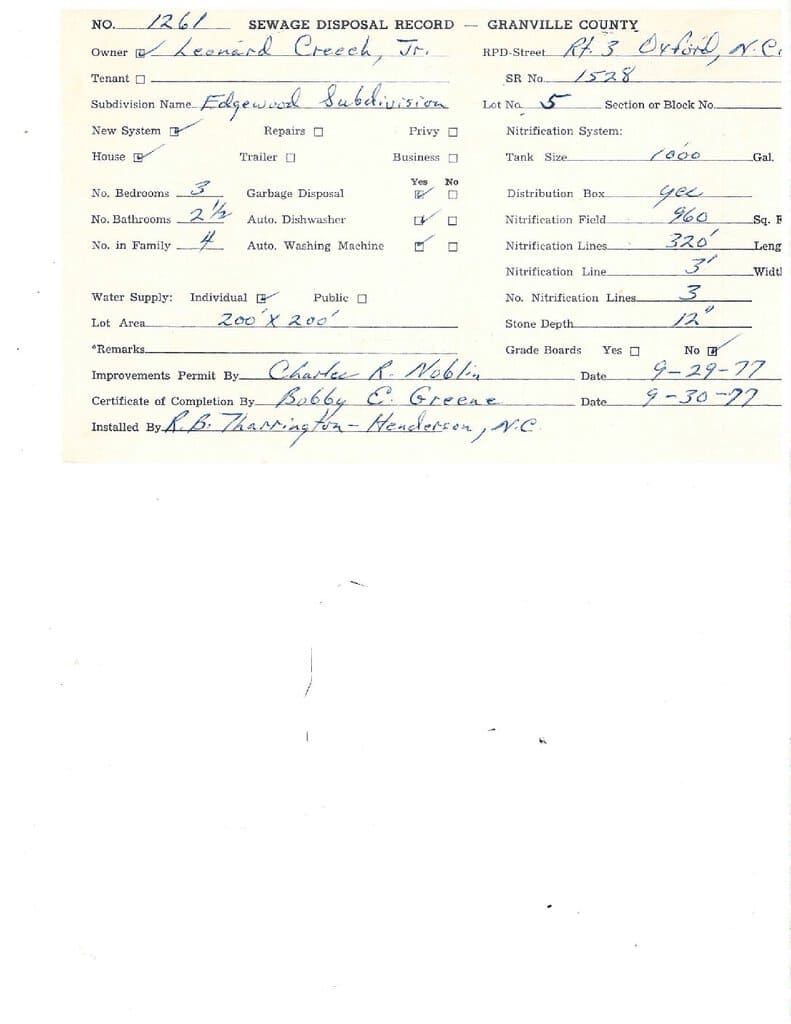 NO. 1261 SEWAGE DISPOSAL RECORD — GRANVILLE COUNTY
Owner ☑ Leonard Creech, Jr. RPD-Street Rt. 3 Oxford, N.C.
Tenant ☐ SR No. 1528
Subdivision Name Edgewood Subdivision Lot No. 5 Section or Block No.
New System ☑ Repairs ☐ Privy ☐ Nitrification System:
House ☑ Trailer ☐ Business ☐ Tank Size 1000 Gal.
Yes No
No. Bedrooms 3 Garbage Disposal ☑ ☐ Distribution Box yes
No. Bathrooms 2 1/2 Auto. Dishwasher ☑ ☐ Nitrification Field 960 Sq. F
No. in Family 4 Auto. Washing Machine ☑ ☐ Nitrification Lines 320' Leng
Nitrification Line 3' Widt
Water Supply: Individual ☑ Public ☐ No. Nitrification Lines 3
Lot Area 200' X 200' Stone Depth 12"
*Remarks Grade Boards Yes ☐ No ☑
Improvements Permit By Charles R. Noblin Date 9-29-77
Certificate of Completion By Bobby E. Greene Date 9-30-77
Installed By R.B. Tharrington - Henderson, N.C.